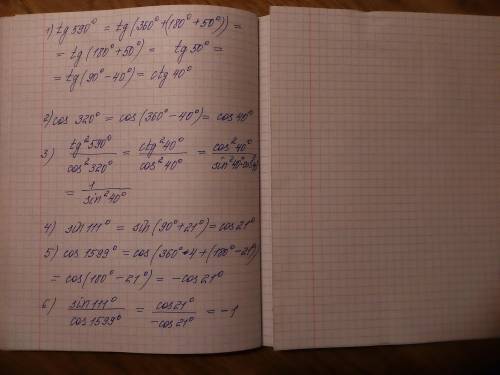 1) tg 590° = tg (360° + (180° + 50°)) =
= tg (180° + 50°) = tg 50° =
= tg (90° - 40°) = ctg 40°
2) cos 320° = cos (360° - 40°) = cos 40°
3) tg²590° / cos²320° = ctg²40° / cos²40° = cos²40° / sin²40°·cos²40°
= 1 / sin²40°
4) sin 111° = sin (90° + 21°) = cos 21°
5) cos 1599° = cos (360°·4 + (180° - 21°)
= cos (180° - 21°) = -cos 21°
6) sin 111° / cos 1599° = cos 21° / -cos 21° = -1